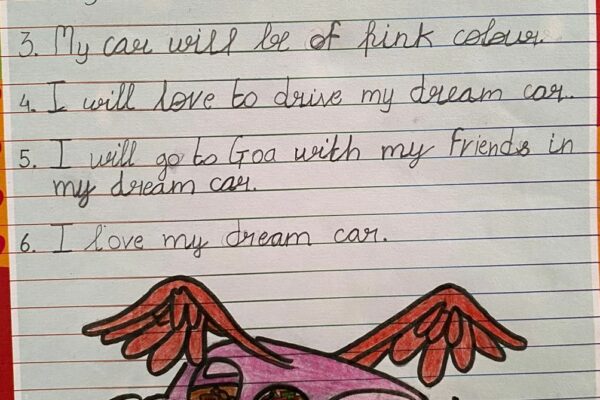 3. My car will be of pink colour.
4. I will love to drive my dream car.
5. I will go to Goa with my friends in
my dream car.
6. I love my dream car.